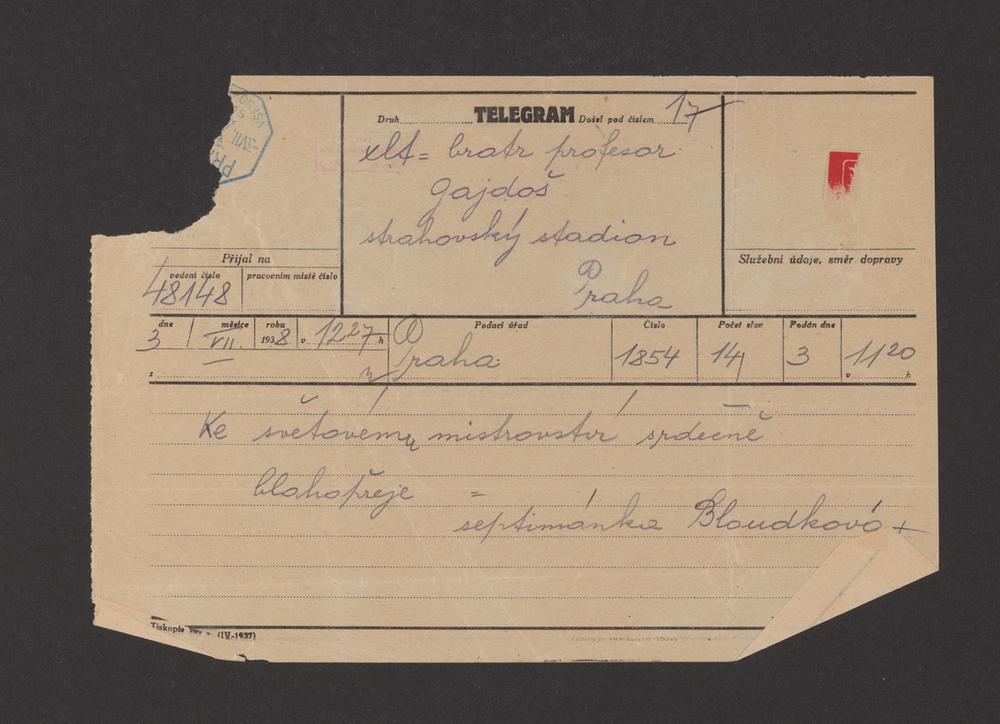 Druh TELEGRAM Došel pod číslem 17
xlt = bratr profesor
Gajdoš
strahovský stadion
Praha
Přijal na
vedení číslo pracovním místě číslo
48148
Služební údaje, směr dopravy
dne měsíce roku Podací úřad Číslo Počet slov Podán dne
3 VII. 1938 v 1227 h Praha 1854 14 3 v 1120 h
z
Ke světovému mistrovství srdečně
blahopřeje =
septimánka Bloudková +
Tiskopis (IV-1937)